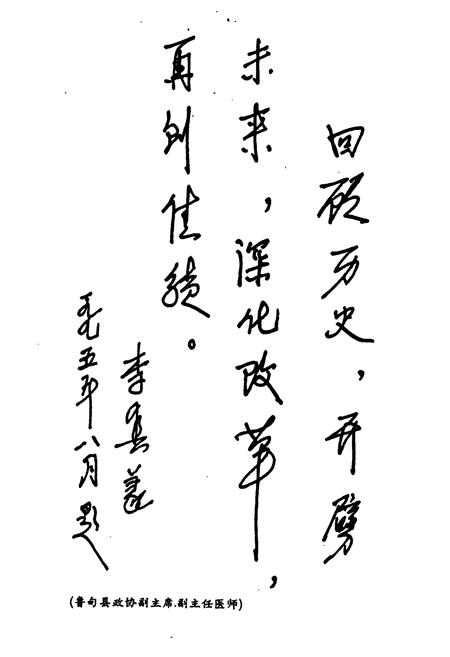 回顾历史，开劈
未来，深化改革，
再创佳绩。
李
一九九五年八月题
(鲁甸县政协副主席、副主任医师)